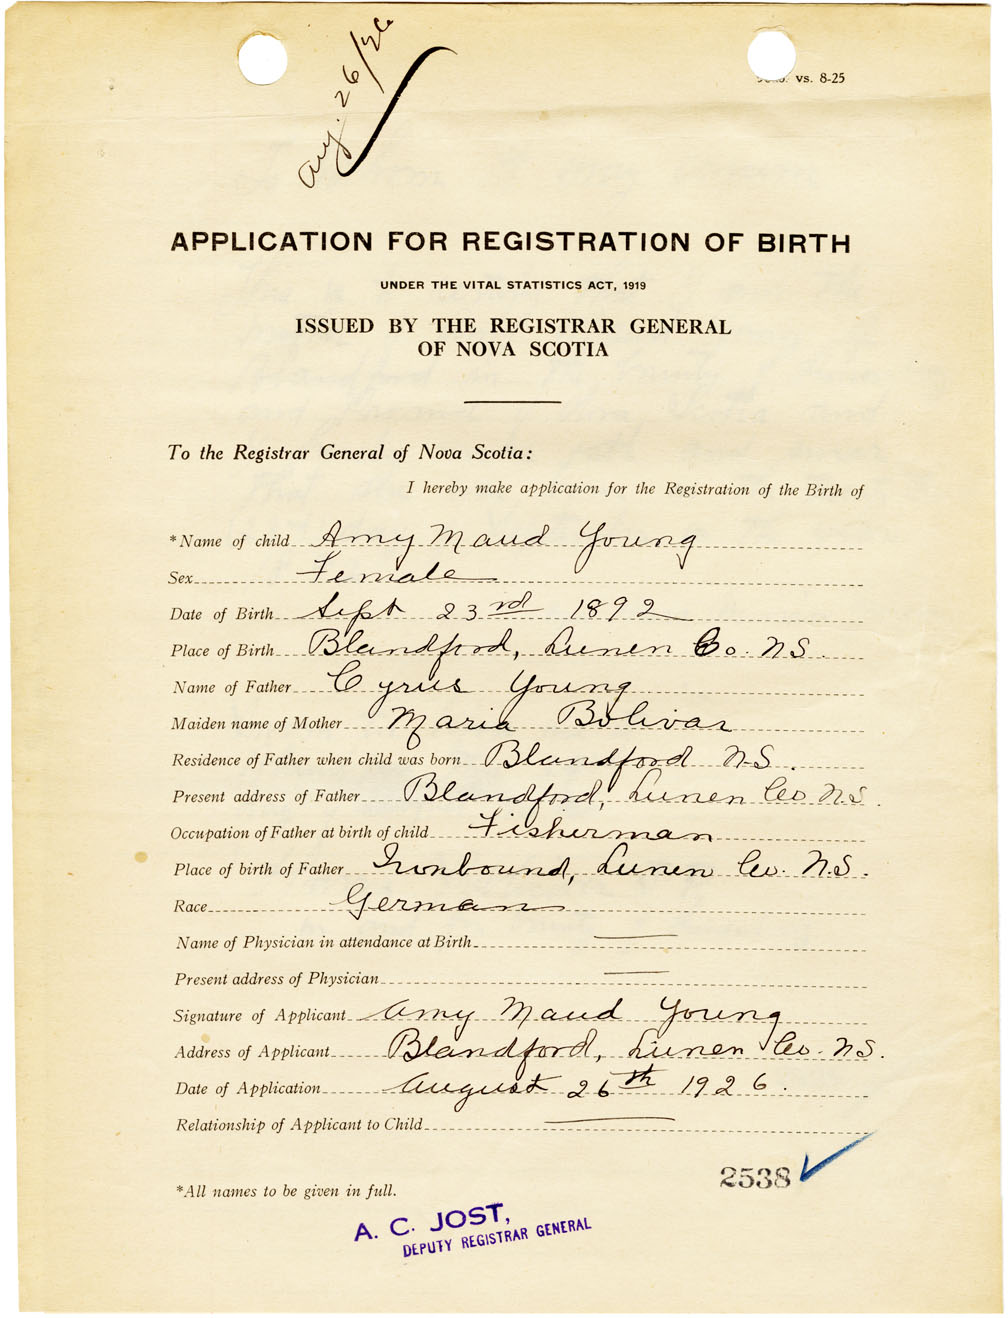 Aug. 26/26
vs. 8-25
APPLICATION FOR REGISTRATION OF BIRTH
UNDER THE VITAL STATISTICS ACT, 1919
ISSUED BY THE REGISTRAR GENERAL
OF NOVA SCOTIA
To the Registrar General of Nova Scotia:
I hereby make application for the Registration of the Birth of
*Name of child Amy Maud Young
Sex Female
Date of Birth Sept 23rd 1892
Place of Birth Blandford, Lunen Co. N.S.
Name of Father Cyrus Young
Maiden name of Mother Maria Bolivar
Residence of Father when child was born Blandford N.S.
Present address of Father Blandford, Lunen Co N.S.
Occupation of Father at birth of child Fisherman
Place of birth of Father Ironbound, Lunen Co. N.S.
Race German
Name of Physician in attendance at Birth
Present address of Physician
Signature of Applicant Amy Maud Young
Address of Applicant Blandford, Lunen Co. N.S.
Date of Application August 26th 1926.
Relationship of Applicant to Child
2538
*All names to be given in full.
A. C. JOST,
DEPUTY REGISTRAR GENERAL